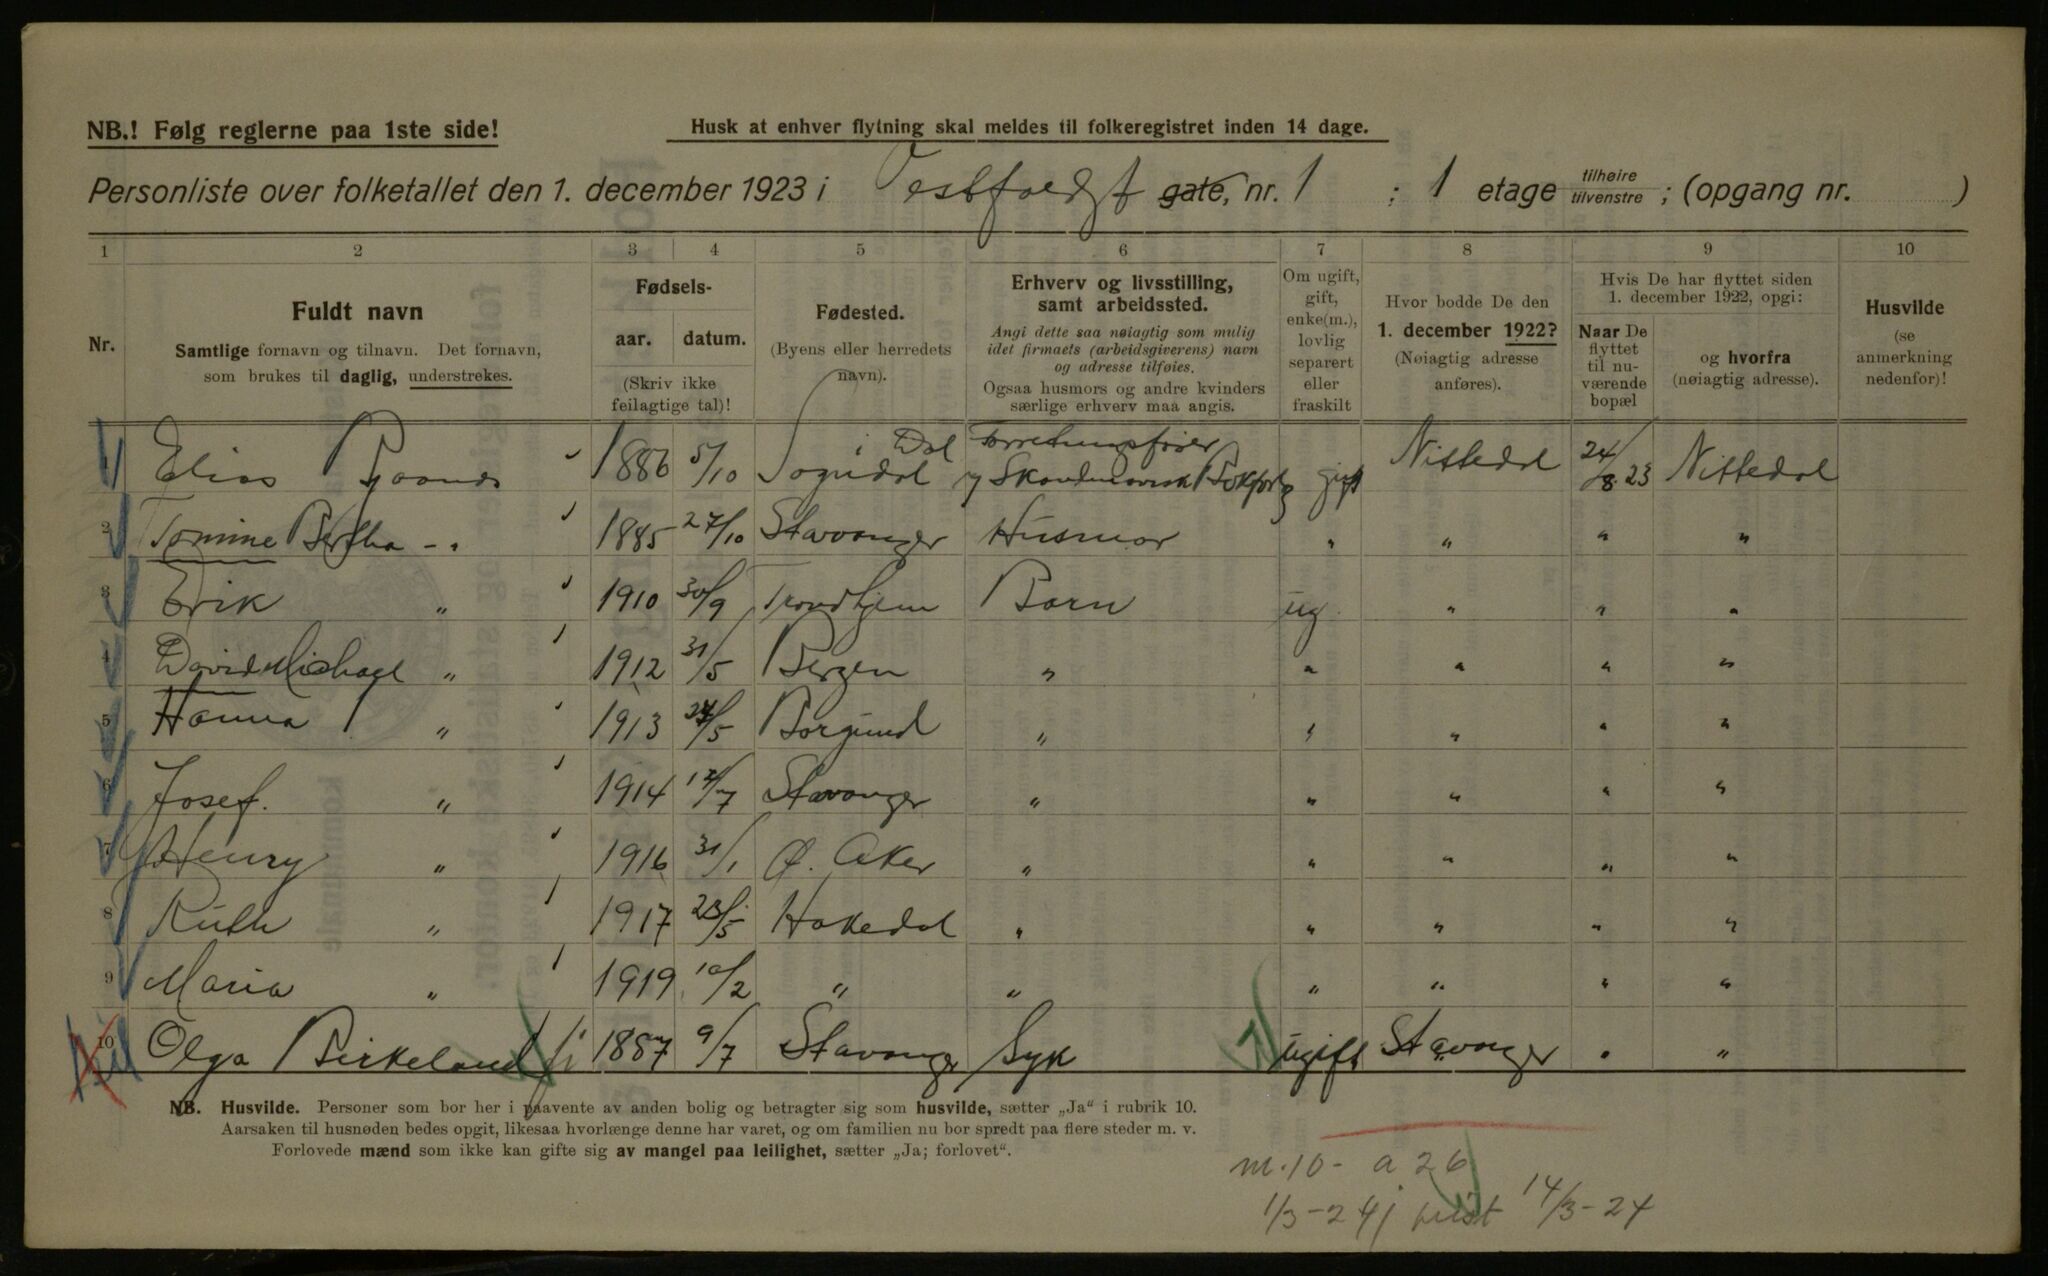 NB.! Følg reglerne paa 1ste side!
Husk at enhver flytning skal meldes til folkeregistret inden 14 dage.
Personliste over folketallet den 1. december 1923 i Vestfoldgt gate, nr. 1 ; 1 etage tilhøire tilvenstre ; (opgang nr. )
1 2 3 4 5 6 7 8 9 10
Nr.
Fuldt navn
Samtlige fornavn og tilnavn. Det fornavn, som brukes til daglig, understrekes.
Fødsels-
aar. datum.
(Skriv ikke feilagtige tal)!
Fødested.
(Byens eller herredets navn).
Erhverv og livsstilling, samt arbeidssted.
Angi dette saa nøiagtig som mulig idet firmaets (arbeidsgiverens) navn og adresse tilføies.
Ogsaa husmors og andre kvinders særlige erhverv maa angis.
Om ugift, gift, enke(m.), lovlig separert eller fraskilt
Hvor bodde De den 1. december 1922?
(Nøiagtig adresse anføres).
Hvis De har flyttet siden 1. december 1922, opgi:
Naar De flyttet til nuværende bopæl
og hvorfra (nøiagtig adresse).
Husvilde
(se anmerkning nedenfor)!
1 Elias 1886 5/10 Sogndal i Dal Forretningsfører Skandinavisk gift Nittedal 24/8.23 Nittedal
2 Tomine Bertha -„ 1885 27/10 Stavanger Husmor „ „ „ „
3 Erik „ 1910 30/9 Trondhjem Barn ug. „ „ „
4 David Michael „ 1912 31/5 Bergen „ „ „ „ „
5 Hanna „ 1913 /5 Borgund „ „ „ „ „
6 Josef. „ 1914 12/7 Stavanger „ „ „ „ „
7 Henry „ 1916 31/1 Ø. Aker „ „ „ „ „
8 Ruth „ 1917 23/5 Hakedal „ „ „ „ „
9 Maria „ 1919 10/2 „ „ „ „ „ „
10 Olga Birkeland 1887 9/7 Stavanger Syk ugift Stavanger „ „
NB. Husvilde. Personer som bor her i paavente av anden bolig og betragter sig som husvilde, sætter „Ja“ i rubrik 10.
Aarsaken til husnøden bedes opgit, likesaa hvorlænge denne har varet, og om familien nu bor spredt paa flere steder m. v.
Forlovede mænd som ikke kan gifte sig av mangel paa leilighet, sætter „Ja; forlovet“.
m. 10 - a 26
1/3-24 14/3-24